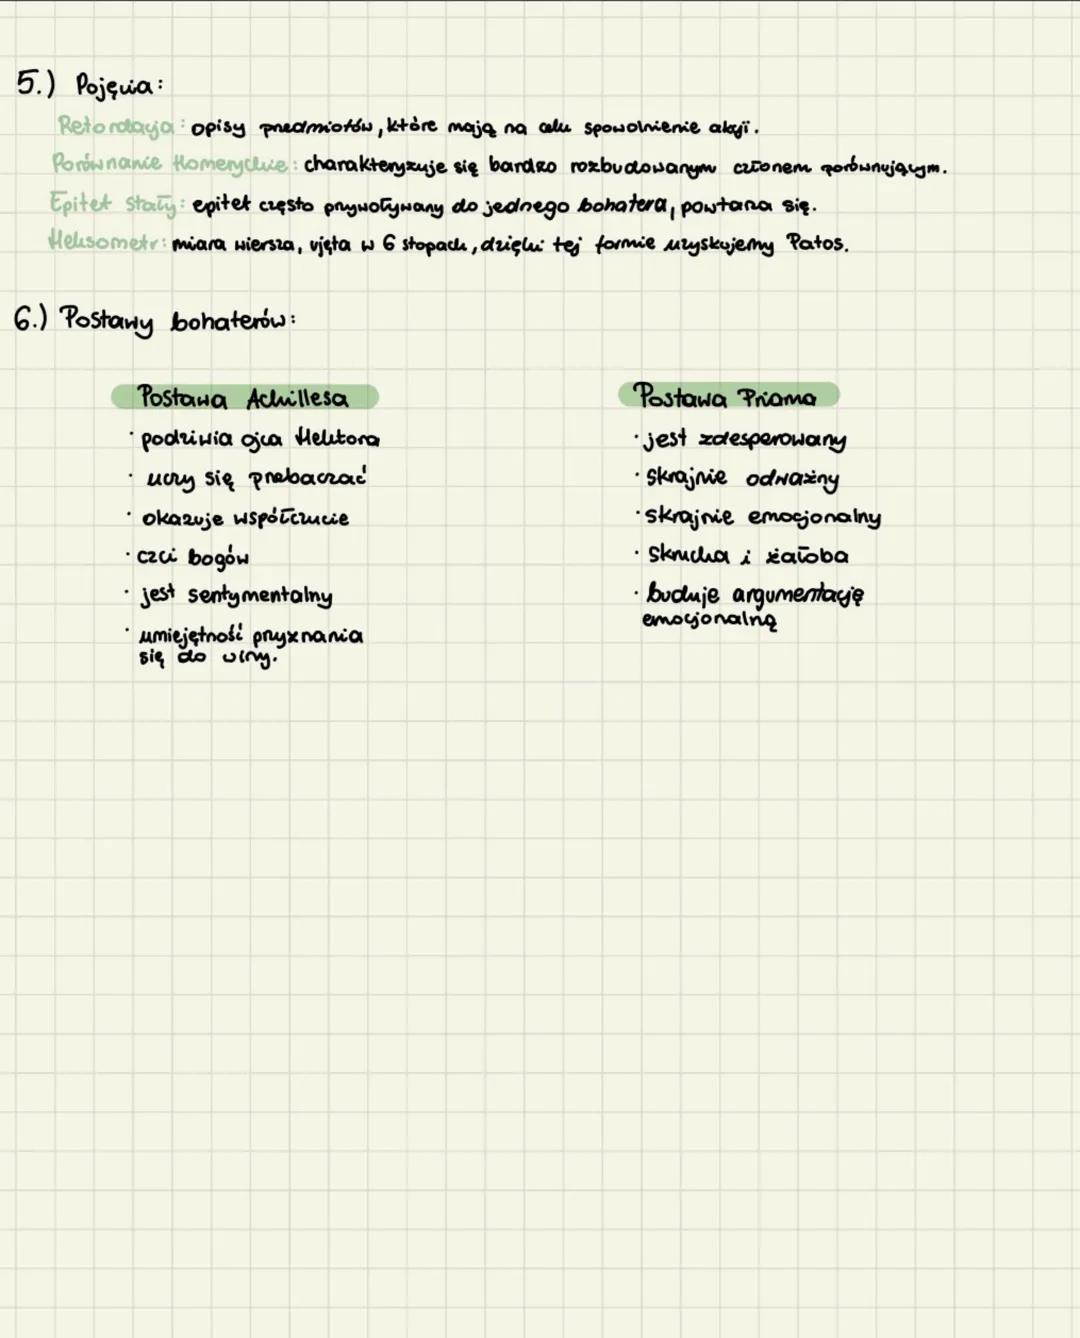 5.) Pojęcia:
Retardacja: opisy przedmiotów, które mają na celu spowolnienie akcji.
Porównanie Homeryckie: charakteryzuje się bardzo rozbudowanym członem porównującym.
Epitet stały: epitet często przywoływany do jednego bohatera, powtarza się.
Heksametr: miara wiersza, ujęta w 6 stopach, dzięki tej formie uzyskujemy Patos.
6.) Postawy bohaterów:
Postawa Achillesa
· podziwia ojca Hektora
· uczy się przebaczać
· okazuje współczucie
· czci bogów
· jest sentymentalny
· umiejętność przyznania
się do winy.
Postawa Priama
· jest zdesperowany
· skrajnie odważny
· skrajnie emocjonalny
· skrucha i żałoba
· buduje argumentację
emocjonalną